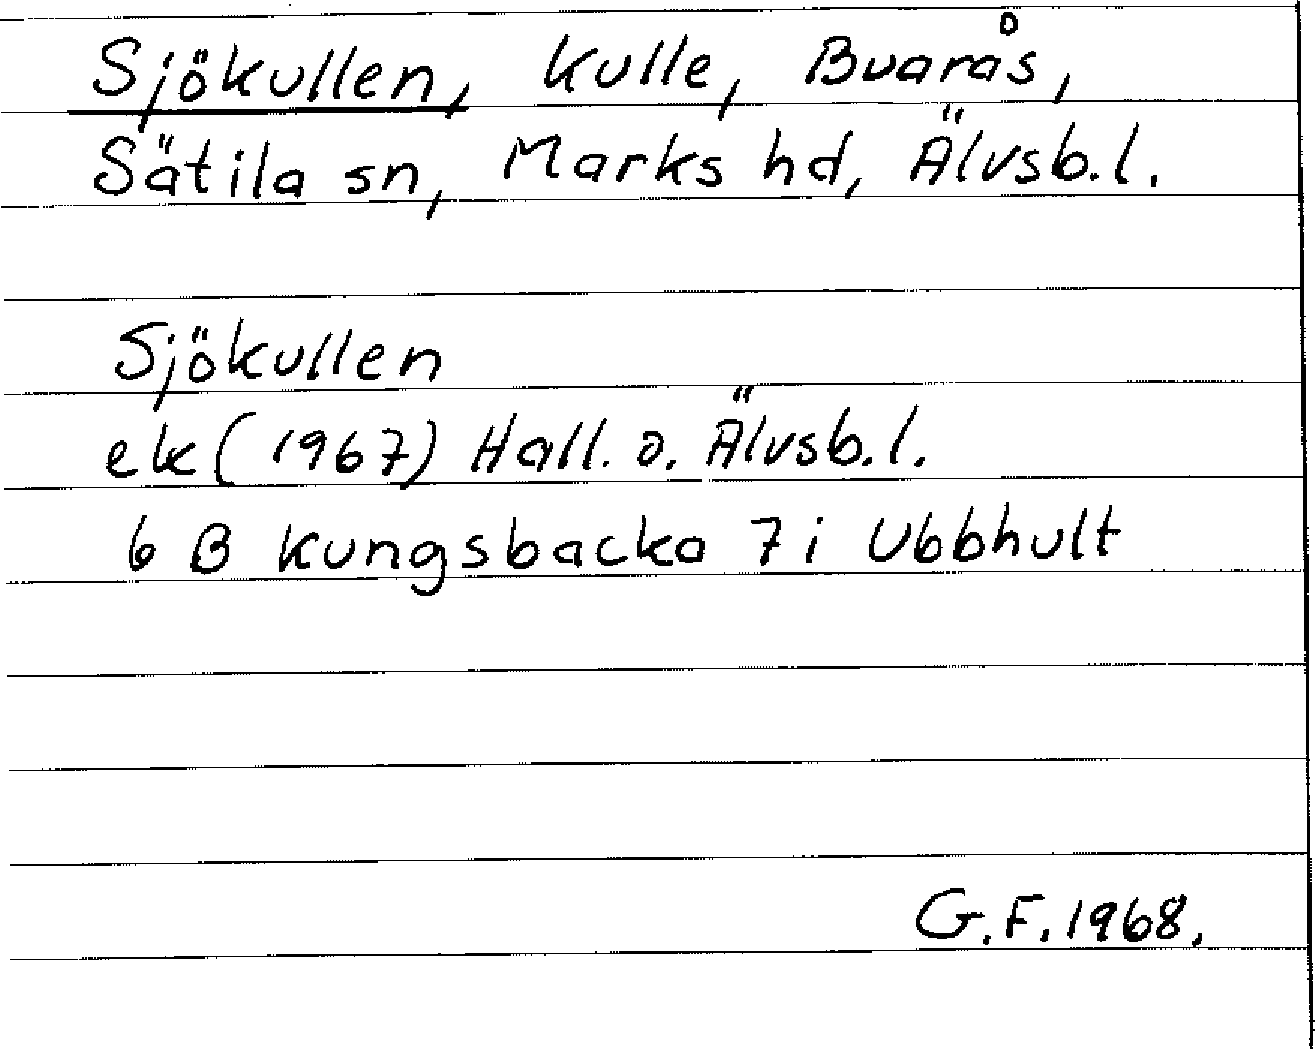 Sjökullen, kulle, Buarås,
Sätila sn, Marks hd, Älvsb.l.
Sjökullen
ek (1967) Hall. o. Älvsb.l.
6 B Kungsbacka 7 i Ubbhult
G.F. 1968.